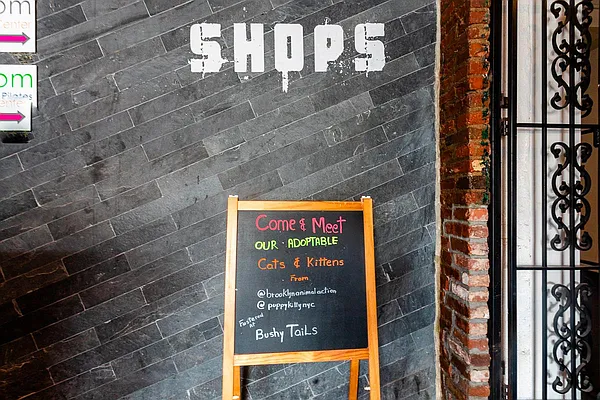 om
Center
om
Pilates
Center
SHOPS
Come & Meet
OUR · ADOPTABLE
Cats & Kittens
From
@brooklynanimalaction
@poppykittynyc
Fostered
at
Bushy TaiLs